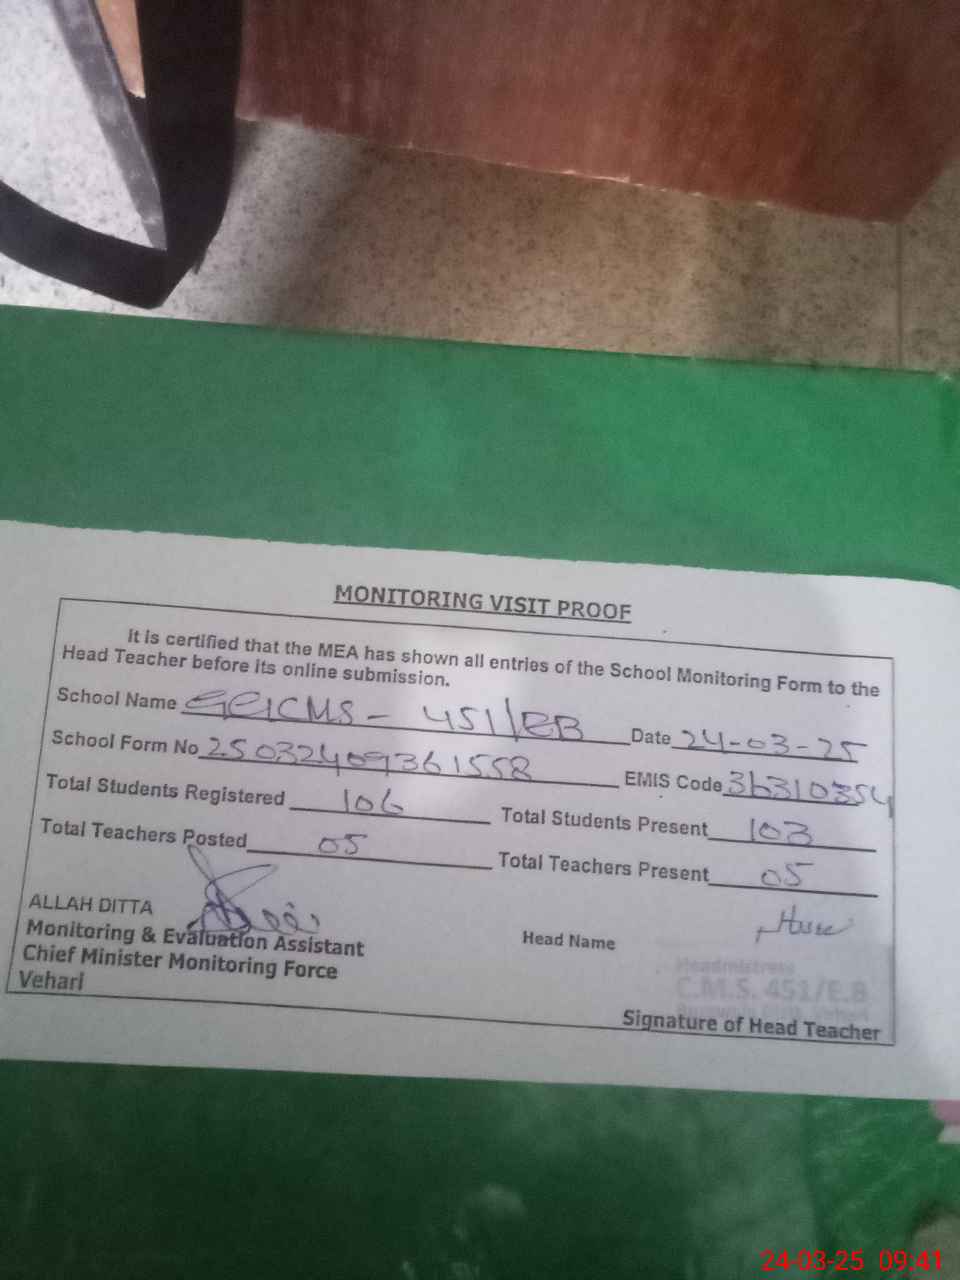 MONITORING VISIT PROOF
It is certified that the MEA has shown all entries of the School Monitoring Form to the
Head Teacher before its online submission.
School Name GGICMS - 451/EB Date 24-03-25
School Form No 25032409361558 EMIS Code 36310354
Total Students Registered 106 Total Students Present 103
Total Teachers Posted 05 Total Teachers Present 05
ALLAH DITTA
Monitoring & Evaluation Assistant Head Name
Chief Minister Monitoring Force
Vehari
Headmistress
C.M.S. 451/E.B
Signature of Head Teacher
24-03-25 09:41